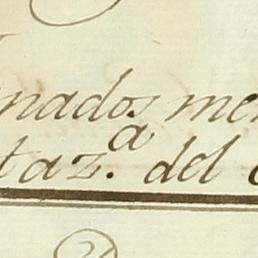 nados me
taz.ª del